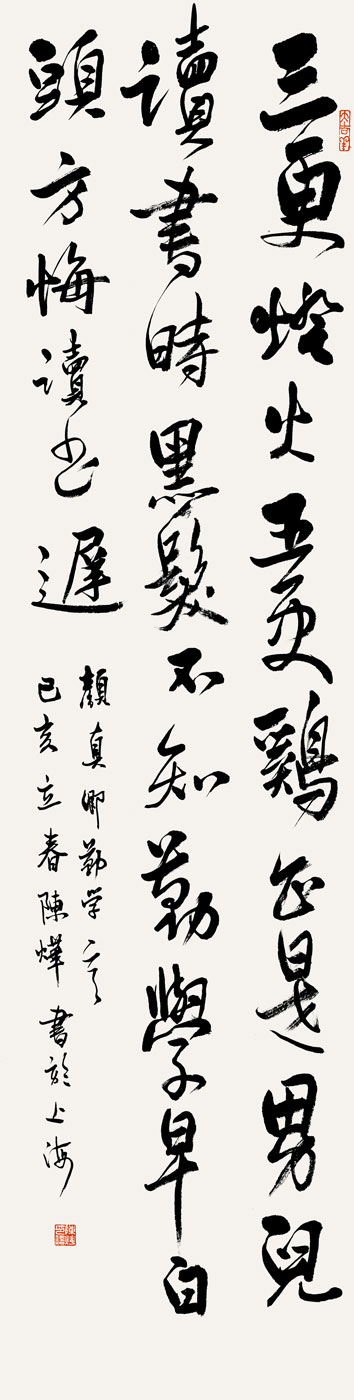 三更燈火五更鷄正是男兒
讀書時黑髮不知勤學早白
頭方悔讀书遲
顏真卿勤学
己亥立春陳燁書於上海